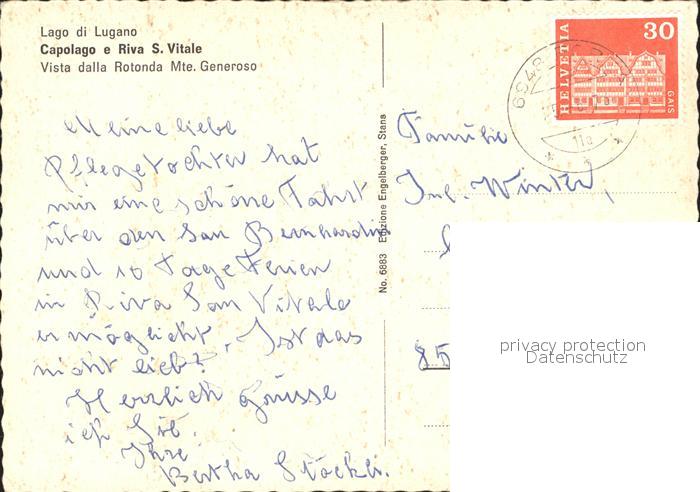 Lago di Lugano
Capolago e Riva S. Vitale
Vista dalla Rotonda Mte. Generoso
Meine liebe
Pflegetochter hat
mir eine schöne Fahrt
über den San Bernhardin
und 10 Tage Ferien
in Riva San Vitale
ermöglicht. Ist das
nicht lieb?
Herzlich Grüsse
ich Sie.
Ihre
Bertha Stöckli.
No. 6883 Edizione Engelberger, Stans
HELVETIA
30
GAIS
6048
11a
Familie
Jul. Winter,
85
privacy protection
Datenschutz